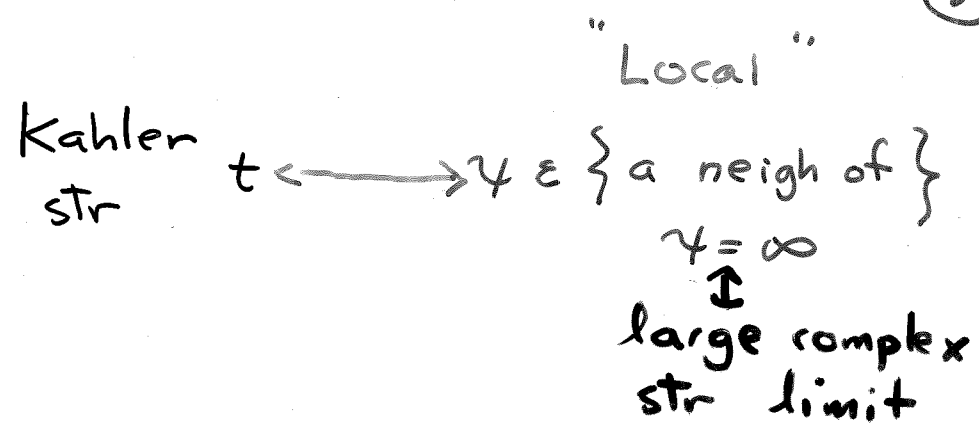 "Local"
Kahler str t ↔ ψ ε { a neigh of }
ψ = ∞
↕
large complex
str limit